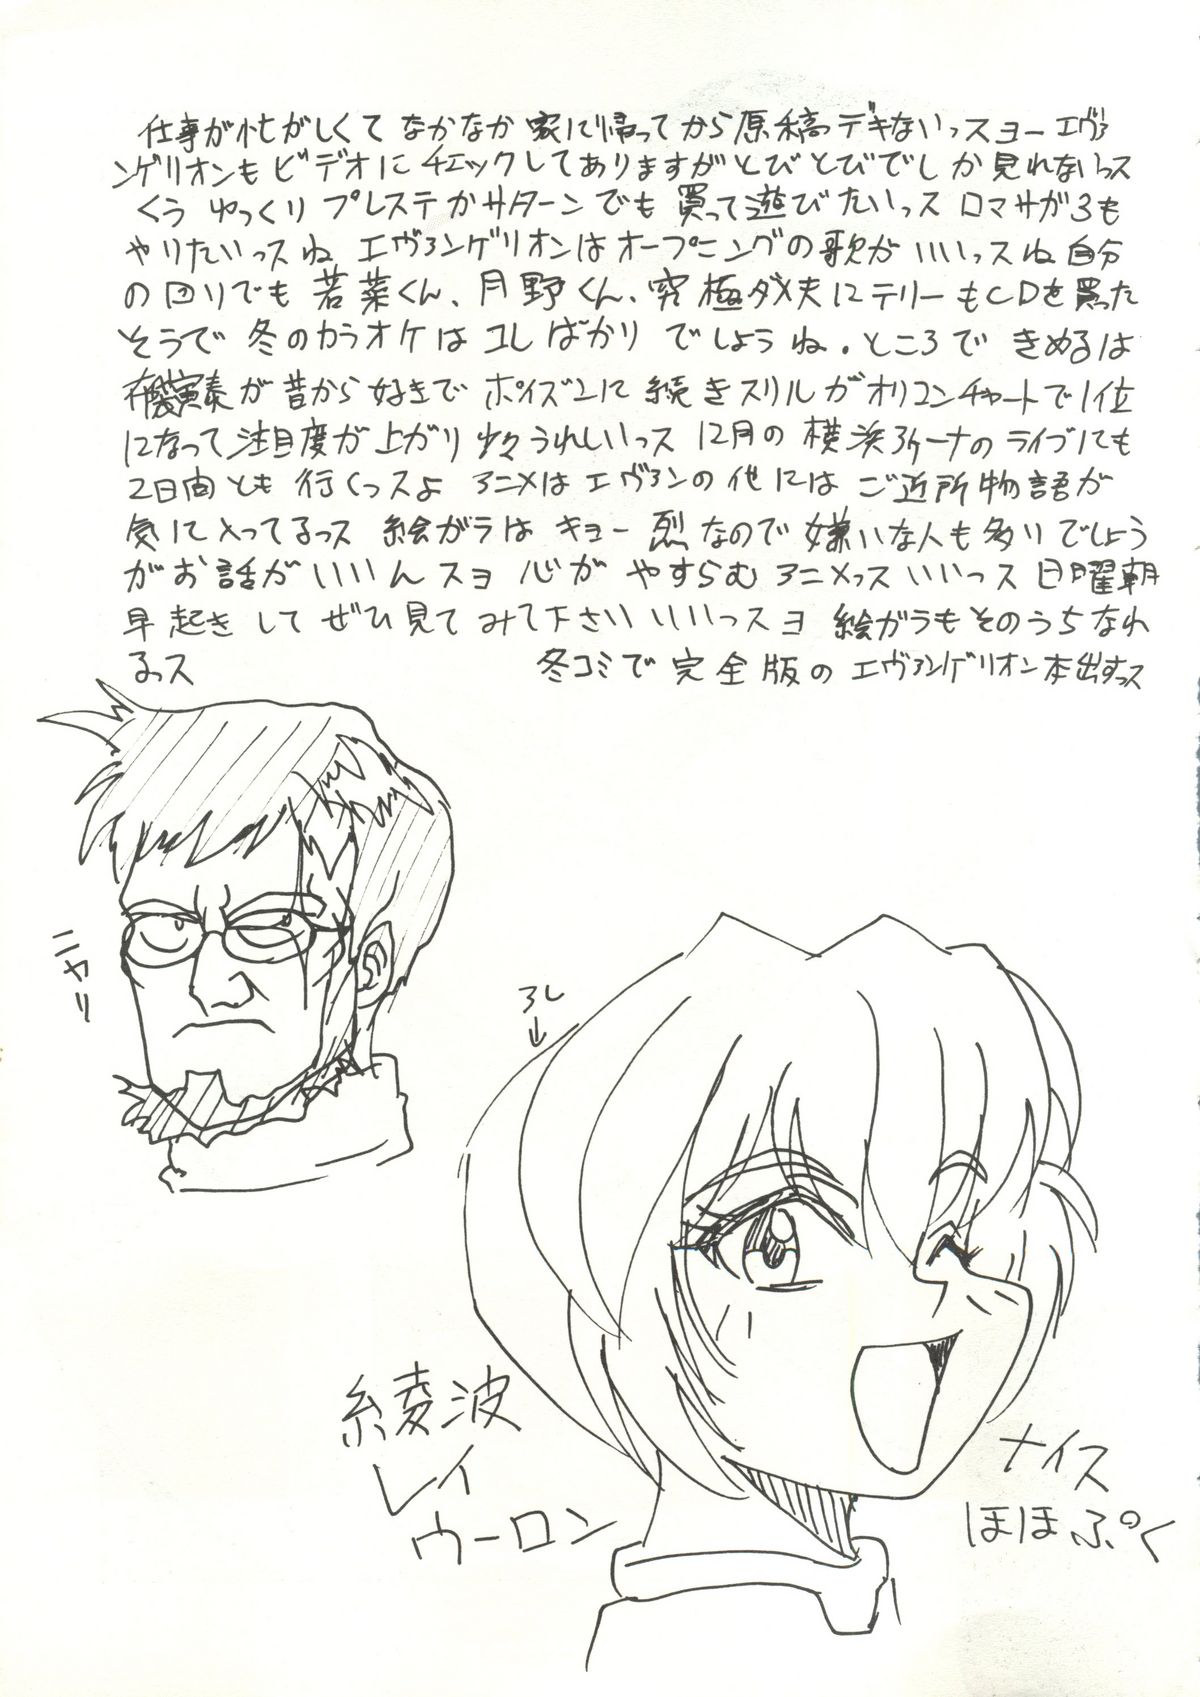 仕事が忙がしくて なかなか 家に帰ってから原稿デキないっスヨー エヴァ
ンゲリオンもビデオにチェックしてありますがとびとびでしか見れないっス
くう ゆっくり プレステかサターンでも買って遊びたいっス ロマサガ3も
やりたいっスね エヴァンゲリオンはオープニングの歌がいいっスね自分
の回りでも 若菜くん、月野くん、究極ダメ夫にテリーもCDを買った
そうで 冬のカラオケはコレばかり でしょうね。ところで きめるは
布袋寅泰が昔から好きで ポイズンに続きスリルがオリコンチャートで1位
になって注目度が上がり 少々うれしいっス 12月の 横浜アリーナのライブにも
2日間とも 行くっスよ アニメはエヴァンの他には ご近所物語が
気に入ってるっス 絵ガラは キョー烈なので嫌いな人も多いでしょう
がお話がいいんスヨ 心が やすらむアニメっス いいっス 日曜朝
早起きして ぜひ見てみて下さい いいっスヨ 絵ガラもそのうちなれ
るっス 冬コミで完全版の エヴァンゲリオン本出すっス
ニヤリ
アレ
↓
綾波
レイ
ウーロン
ナイス
ほほぷく